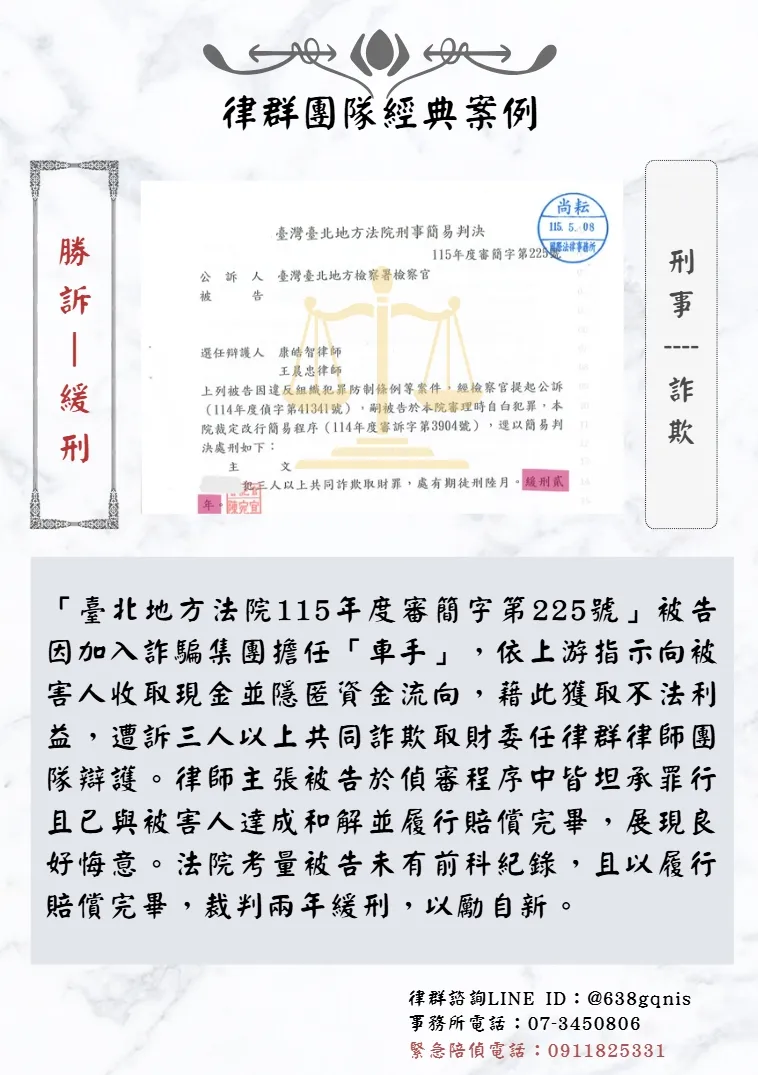 律群團隊經典案例
勝訴—緩刑
刑事----詐欺
尚耘
115. 5. 08
國際法律事務所
臺灣臺北地方法院刑事簡易判決
115年度審簡字第225號
公訴人 臺灣臺北地方檢察署檢察官
被告
選任辯護人 康皓智律師
王晨忠律師
上列被告因違反組織犯罪防制條例等案件，經檢察官提起公訴
（114年度偵字第41341號），嗣被告於本院審理時自白犯罪，本
院裁定改行簡易程序（114年度審訴字第3904號），逕以簡易判
決處刑如下：
主文
犯三人以上共同詐欺取財罪，處有期徒刑陸月。緩刑貳
年。
「臺北地方法院115年度審簡字第225號」被告
因加入詐騙集團擔任「車手」，依上游指示向被
害人收取現金並隱匿資金流向，藉此獲取不法利
益，遭訴三人以上共同詐欺取財委任律群律師團
隊辯護。律師主張被告於偵審程序中皆坦承罪行
且已與被害人達成和解並履行賠償完畢，展現良
好悔意。法院考量被告未有前科紀錄，且以履行
賠償完畢，裁判兩年緩刑，以勵自新。
律群諮詢LINE ID：@638gqnis
事務所電話：07-3450806
緊急陪偵電話：0911825331